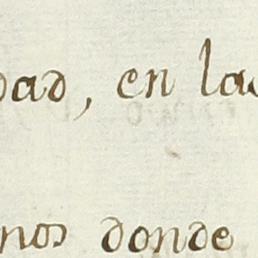 dad, en la
nos donde